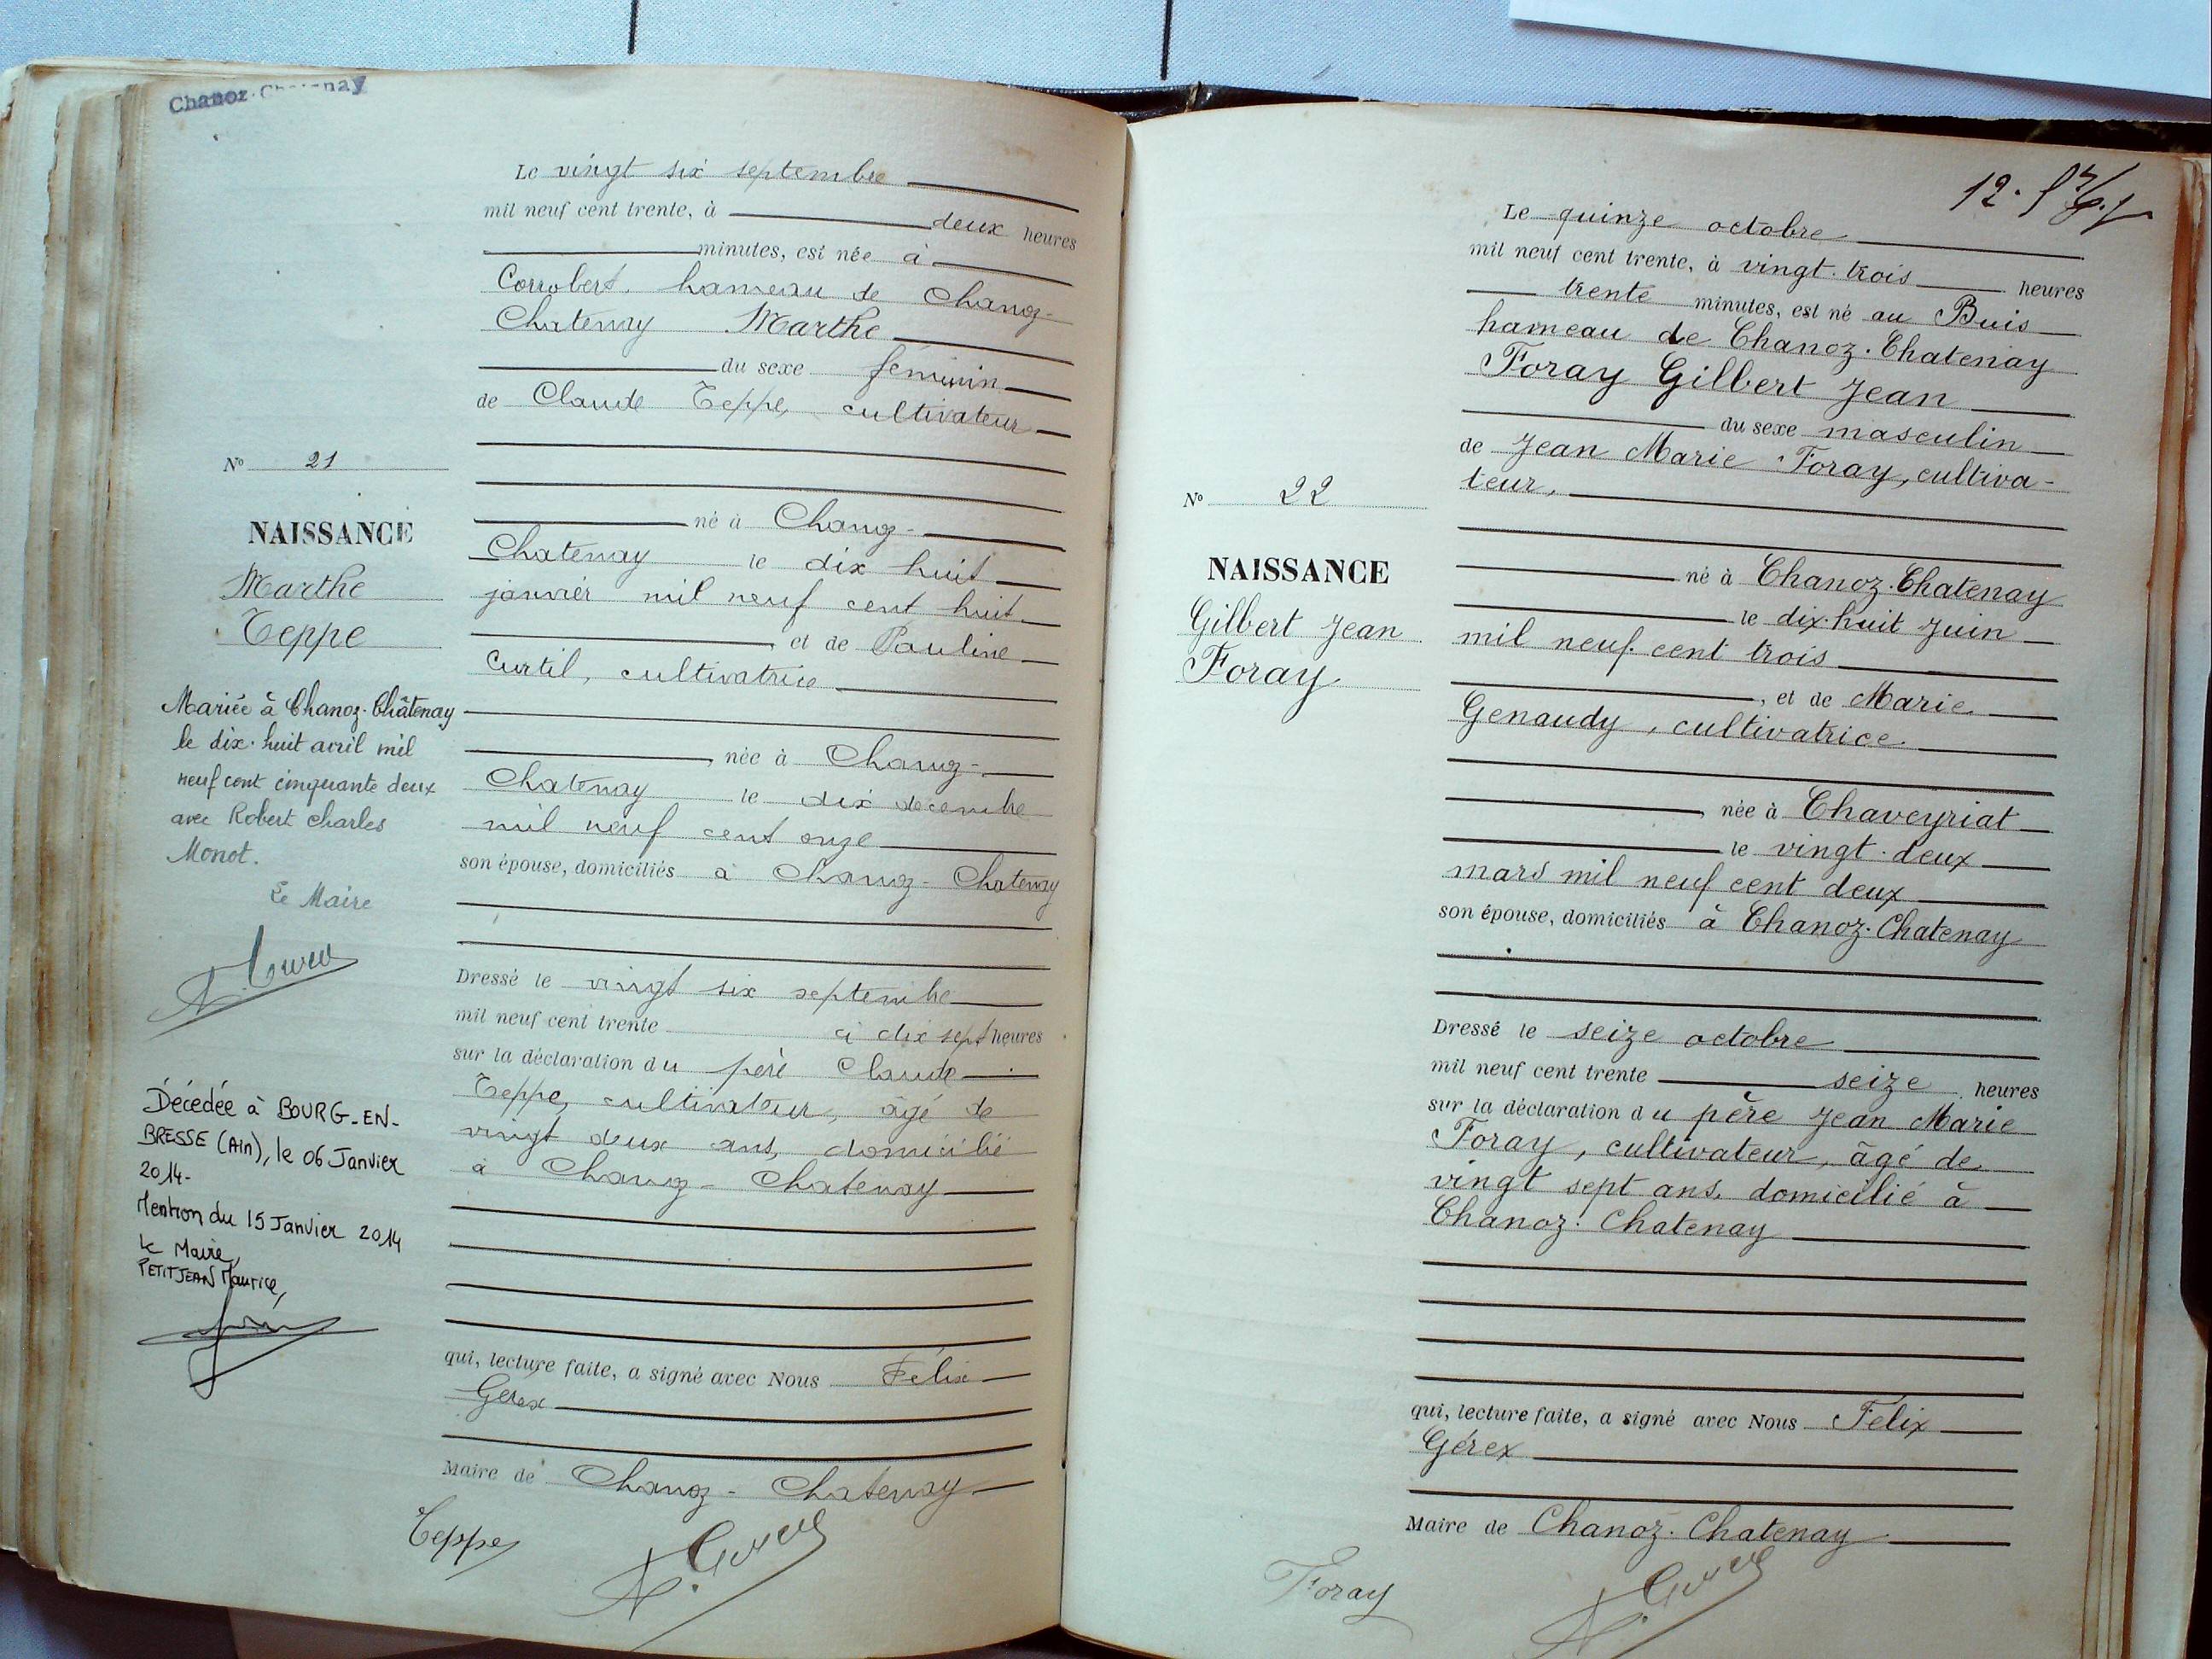 Chanoz-Chatenay
Le vingt six septembre
mil neuf cent trente, à deux heures
minutes, est née à
Corrobert, hameau de Chanoz-
Chatenay Marthe
du sexe féminin
de Claude Teppe, cultivateur
né à Chanoz-
Chatenay le dix huit
janvier mil neuf cent huit
et de Pauline
Curtil, cultivatrice
née à Chanoz-
Chatenay le dix décembre
mil neuf cent onze
son épouse, domiciliés à Chanoz-Chatenay
Dressé le vingt six septembre
mil neuf cent trente à dix sept heures
sur la déclaration du père Claude
Teppe, cultivateur, âgé de
vingt deux ans, domicilié
à Chanoz-Chatenay
qui, lecture faite, a signé avec Nous Félix
Gérex
Maire de Chanoz-Chatenay
Teppe
Nº 21
NAISSANCE
Marthe
Teppe
Mariée à Chanoz-Châtenay
le dix-huit avril mil
neuf cent cinquante deux
avec Robert Charles
Monot.
Le Maire
Décédée à BOURG-EN-
BRESSE (Ain), le 06 Janvier
2014-
Mention du 15 Janvier 2014
Le Maire,
PETITJEAN Maurice,
Le quinze octobre
mil neuf cent trente, à vingt-trois heures
trente minutes, est né au Buis
hameau de Chanoz-Chatenay
Foray Gilbert Jean
du sexe masculin
de Jean Marie Foray, cultiva-
teur,
né à Chanoz-Chatenay
le dix-huit Juin
mil neuf cent trois
, et de Marie
Genaudy, cultivatrice
née à Chaveyriat
le vingt-deux
mars mil neuf cent deux
son épouse, domiciliés à Chanoz-Chatenay
Dressé le seize octobre
mil neuf cent trente seize heures
sur la déclaration du père Jean Marie
Foray, cultivateur, âgé de
vingt sept ans, domicilié à
Chanoz-Chatenay
qui, lecture faite, a signé avec Nous Félix
Gérex
Maire de Chanoz-Chatenay
Foray
Nº 22
NAISSANCE
Gilbert Jean
Foray